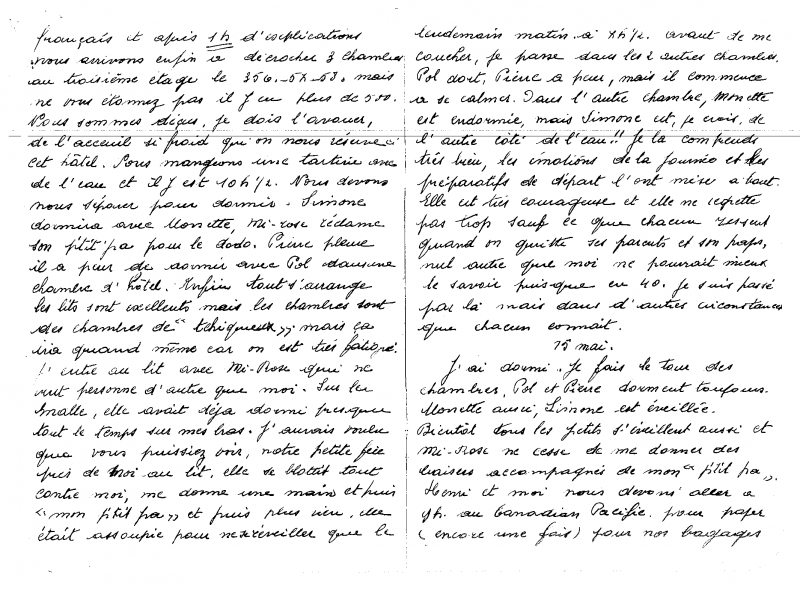 français et après 1h d'explications
nous arrivons enfin à décrocher 3 chambres
au troisième étage le 356.-57-58. mais
ne vous étonnez pas il y en plus de 500.
Nous sommes déçus, je dois l'avouer,
de l'acceuil si froid qu'on nous réserve à
cet hôtel. Nous mangeons une tartine avec
de l'eau et il y est 10h½. Nous devons
nous séparer pour dormir. Simone
dormira avec Monette, Mi-rose réclame
son p'tit pa pour le dodo. Pierre pleure
il a peur de dormir avec Pol dans une
chambre d'hôtel. Enfin tout s'arrange
les lits sont exellents mais les chambres sont
des chambres de " tchiqueux ,, mais ça
ira quand même car on est très fatigué.
J'entre au lit avec Mi-Rose qui ne
veut personne d'autre que moi. Sur la
malle, elle avait déja dormi presque
tout le temps sur mes bras. J'aurais voulu
que vous puissiez voir, notre petite fée
près de moi au lit, elle se blottit tout
contre moi, me donne une main et puis
" mon p'tit pa ,, et puis plus rien, elle
était assoupie pour ne se réveiller que le
lendemain matin à ½. avant de me
coucher, je passe dans les 2 autres chambres.
Pol dort, Pierre a peur, mais il commence
a se calmer. Dans l'autre chambre, Monette
est endormie, mais Simone est, je crois, de
l'autre côté de l'eau!! Je la comprends
très bien, les émotions de la journée et les
préparatifs de départ l'ont mise a bout.
Elle est très courageuse et elle ne regrette
pas trop sauf ce que chacun ressent
quand on quitte ses parents et son pays,
nul autre que moi ne pourrait mieux
le savoir puisque en 40. je suis passé
par là mais dans d'autres circonstances
que chacun connait.
15 mai.
J'ai dormi. Je fais le tour des
chambres, Pol et Pierre dorment toujours.
Monette aussi, Simone est éveillée.
Bientôt tous les petits s'éveillent aussi et
Mi-Rose ne cesse de me donner des
baisers accompagnés de mon " p'tit pa ,,
Henri et moi nous devons aller a
9h. au Canadian Pacific. pour payer
(encore une fois) pour nos bagages